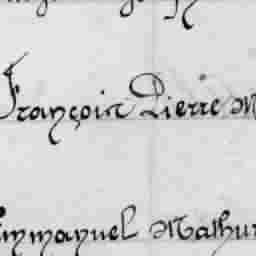 François Pierre M
Emmanuel Mathur